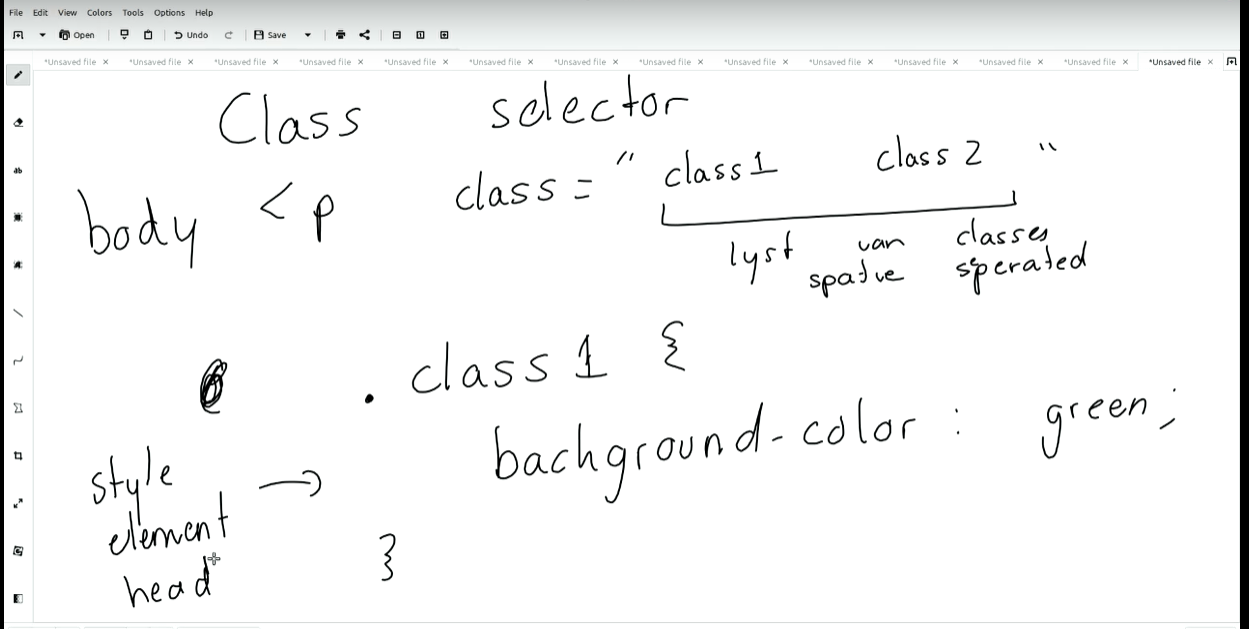 File Edit View Colors Tools Options Help
Open Undo Save
*Unsaved file *Unsaved file *Unsaved file *Unsaved file *Unsaved file *Unsaved file *Unsaved file *Unsaved file *Unsaved file *Unsaved file *Unsaved file *Unsaved file *Unsaved file *Unsaved file
Class selector
body <p class = " class 1 class 2 "
lyst van classes
spatie seperated
. class 1 {
background-color : green ;
}
style
element
head